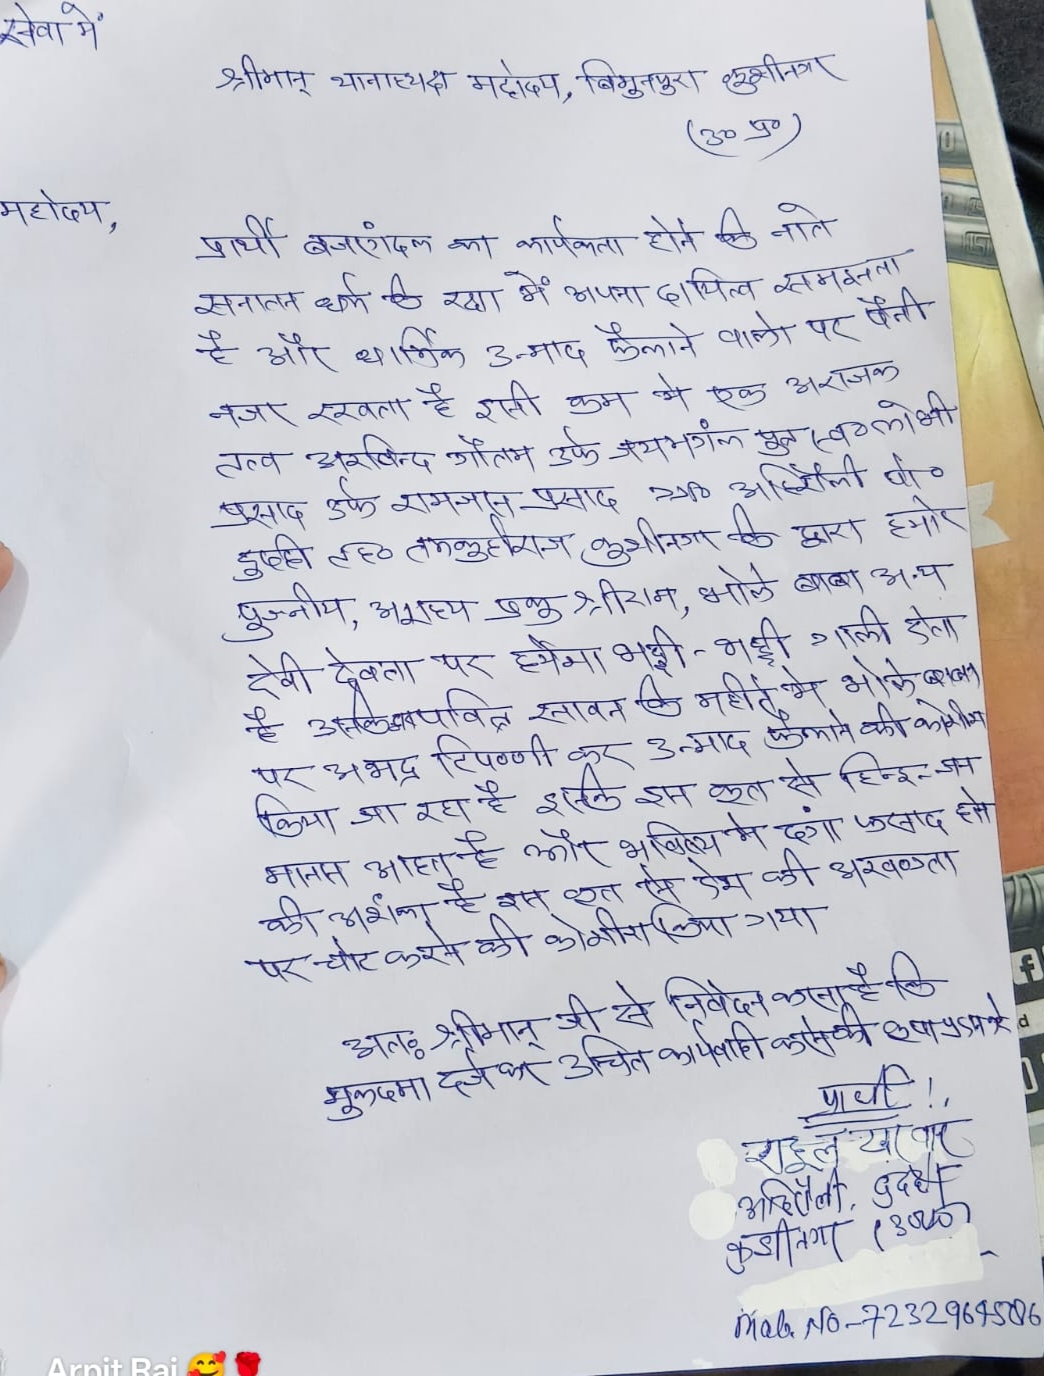 सेवा में
श्रीमान् थानाध्यक्ष महोदय, बिशुनपुरा कुशीनगर
(उ० प्र०)
महोदय,
प्रार्थी बजरंगदल का कार्यकर्ता होने के नाते
सनातन धर्म के रक्षा में अपना दायित्व समझता
है और धार्मिक उन्माद फैलाने वालो पर पैनी
नजर रखता है इसी क्रम मे एक अराजक
तत्व अरविन्द गौतम उर्फ जयमंगल पुत्र स्व० लोभी
प्रसाद उर्फ रामजान प्रसाद अहिरौली पो०
दुदही तह० तमकुहीराज, कुशीनगर के द्वारा हमारे
पुज्नीय, अराध्य प्रभु श्रीराम, भोले बाबा अन्य
देवी देवता पर हमेशा भद्दी - भद्दी गाली देता
है पवित्र सावन के महीने मे भोले बाबा
पर अभद्र टिपण्णी कर उन्माद फैलाने की कोशीश
किया जा रहा है इसके इस कृत से हिन्दू जन
मानस आहत है और भविष्य मे दंगा फसाद होने
की अशंका है इस कृत से देश की अखण्डता
पर चोट करने की कोशीश किया गया
अतः श्रीमान् जी से निवेदन करता है कि
मुकदमा दर्ज कर उचित कार्यवाही करने की कृपा प्रदान करे
प्रार्थी !,
राहुल यादव
अहिरौली, दुदही
कुशीनगर (उ०प्र०)
Mob. No-
Arpit Rai 🥰🌹
f
d